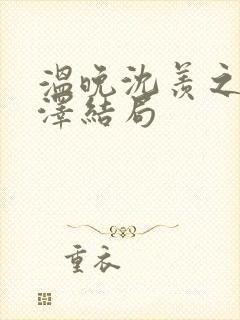 温晚沈羡之
泽结局
重衣